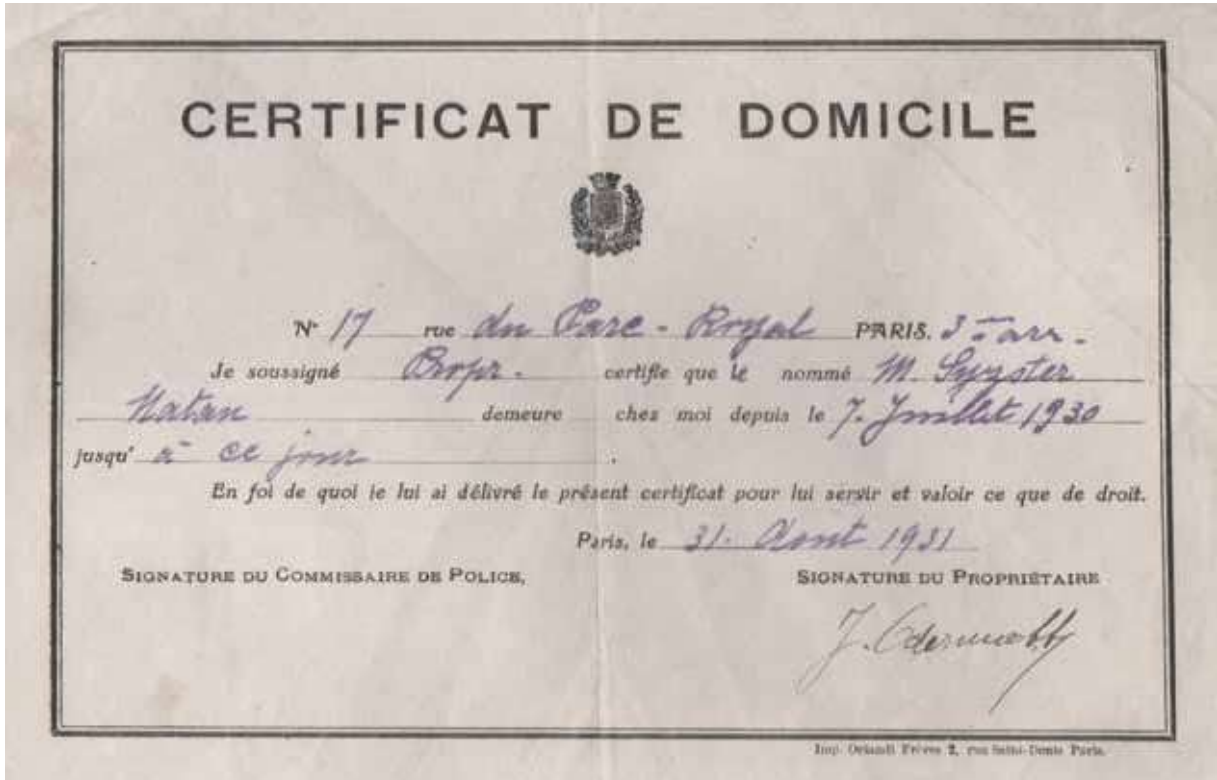 CERTIFICAT DE DOMICILE
N° 17 rue du Parc - Royal PARIS. 3me arr.
Je soussigné Propr. certifie que le nommé M.
Natan demeure chez moi depuis le 7. Juillet 1930
jusqu' à ce jour.
En foi de quoi je lui ai délivré le présent certificat pour lui servir et valoir ce que de droit.
Paris, le 31. Aout 1931
SIGNATURE DU COMMISSAIRE DE POLICE, SIGNATURE DU PROPRIÉTAIRE
J.
Imp. Orlandi Frères 2, rue Saint-Denis Paris.